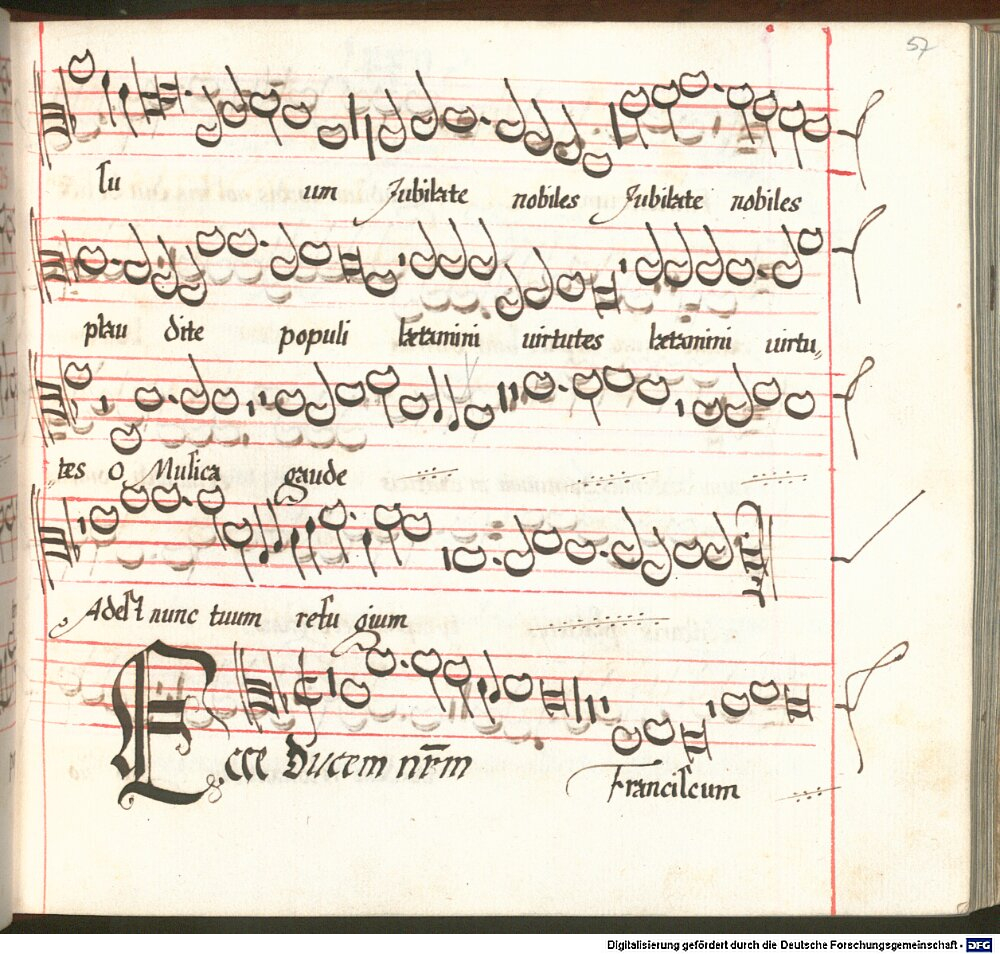 57
ſu um Jubilate nobiles Jubilate nobiles
plau dite populi lætamini uirtutes lætamini uirtu„
„tes O Muſica gaude
Adeſt nunc tuum refu gium
Ecce Ducem nr̄m Franciſcum
Digitalisierung gefördert durch die Deutsche Forschungsgemeinschaft - DFG